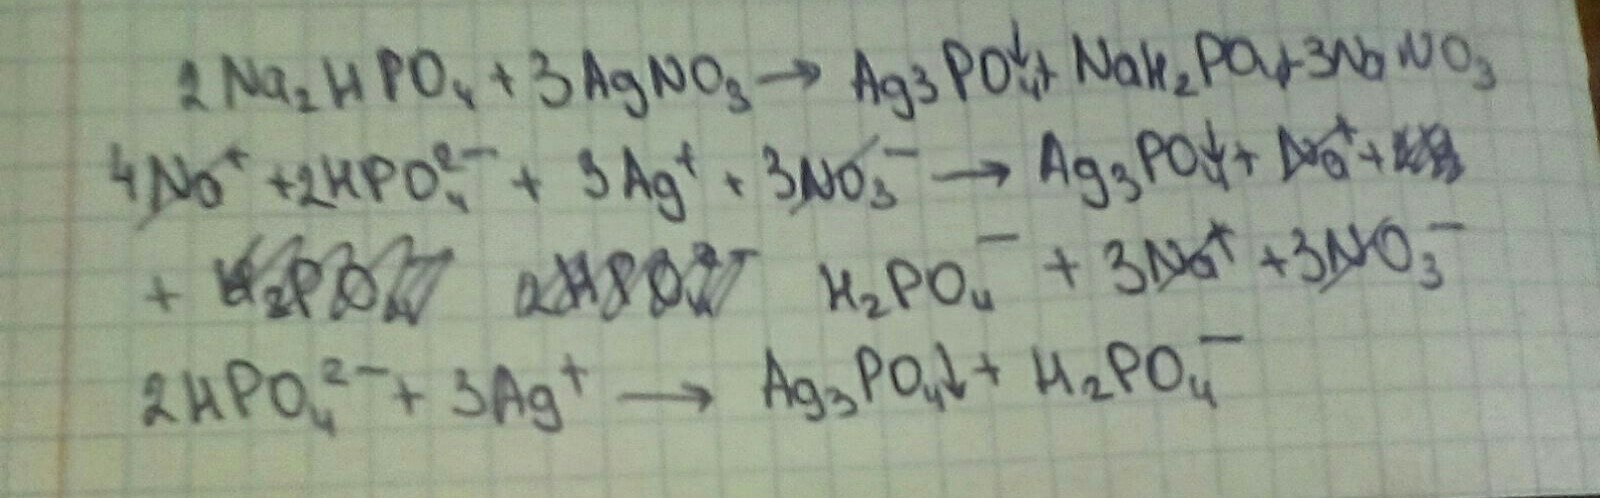 2Na₂HPO₄ + 3AgNO₃ → Ag₃PO₄↓ + NaH₂PO₄ + 3NaNO₃
4Na⁺ + 2HPO₄²⁻ + 3Ag⁺ + 3NO₃⁻ → Ag₃PO₄↓ + Na⁺ +
+ H₂PO₄⁻ 2HPO₄²⁻ H₂PO₄⁻ + 3Na⁺ + 3NO₃⁻
2HPO₄²⁻ + 3Ag⁺ → Ag₃PO₄↓ + H₂PO₄⁻